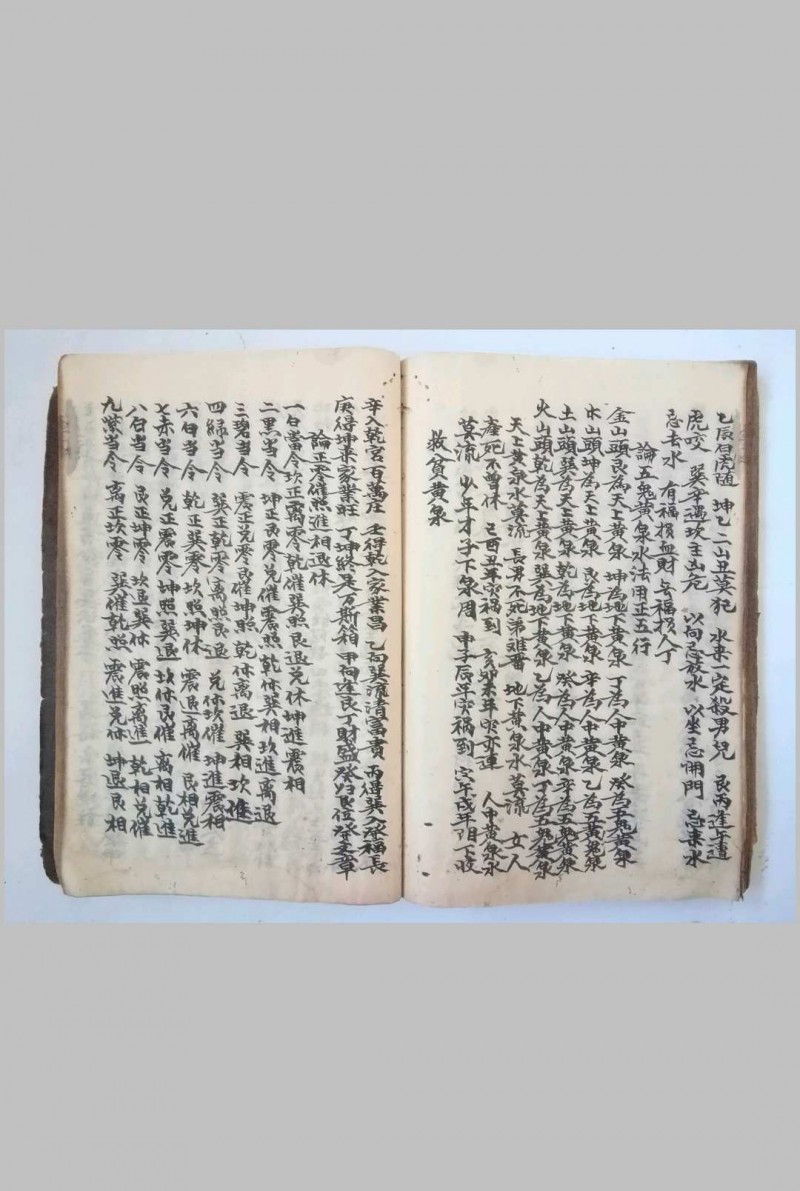 乙辰白虎隨　坤乙二山丑莫犯　水來一定殺男兒　艮丙逢午遭
虎咬　巽辛遇坎主凶危　以向忌放水　以坐忌開門　忌來水
忌去水　有福損血財　無福損人丁
論五鬼黃泉水法用正五行
金山頭艮為天上黃泉　坤為地下黃泉　丁為人中黃泉　癸為五鬼黃泉
木山頭坤為天上黃泉　艮為地下黃泉　辛為人中黃泉　乙為五黃鬼泉
土山頭巽為天上黃泉　乾為地下黃泉　癸為人中黃泉　辛為五鬼黃泉
火山頭乾為天上黃泉　巽為地下黃泉　乙為人中黃泉　丁為五鬼黃泉
天上黃泉水莫流　長男不死弟難留　地下黃泉水莫流　女人
產死不曾休　巳酉丑年災禍到　亥卯未年災亦連　人中黃泉水
莫流　少年才子下泉周　申子辰年災禍到　寅午戌年
救貧黃泉
辛入乾宮百萬庄　壬得乾入家業昌　乙向巽流清富貴　丙得巽入發福長
庚得坤來家業旺　丁坤終是万斯箱　甲向逢艮丁財盛　癸歸艮位發文章
論正零催照進相退休
一白當令　坎正離零　乾催巽照　艮退兌休　坤進震相
二黑當令　坤正艮零　兌催震照　乾休巽相　坎進離退
三碧當令　震正兌零　艮催坤照　乾休離退　巽相坎進
四綠當令　巽正乾零　離照艮退　兌休坎催　坤進震相
六白當令　乾正巽零　坎照坤休　震退離催　艮相兌進
七赤當令　兌正震零　坤照巽退　坎休艮催　離相乾進
八白當令　艮正坤零　坎退巽休　震照離進　乾相兌催
九紫當令　离正坎零　巽催乾照　震進兌休　坤退艮相